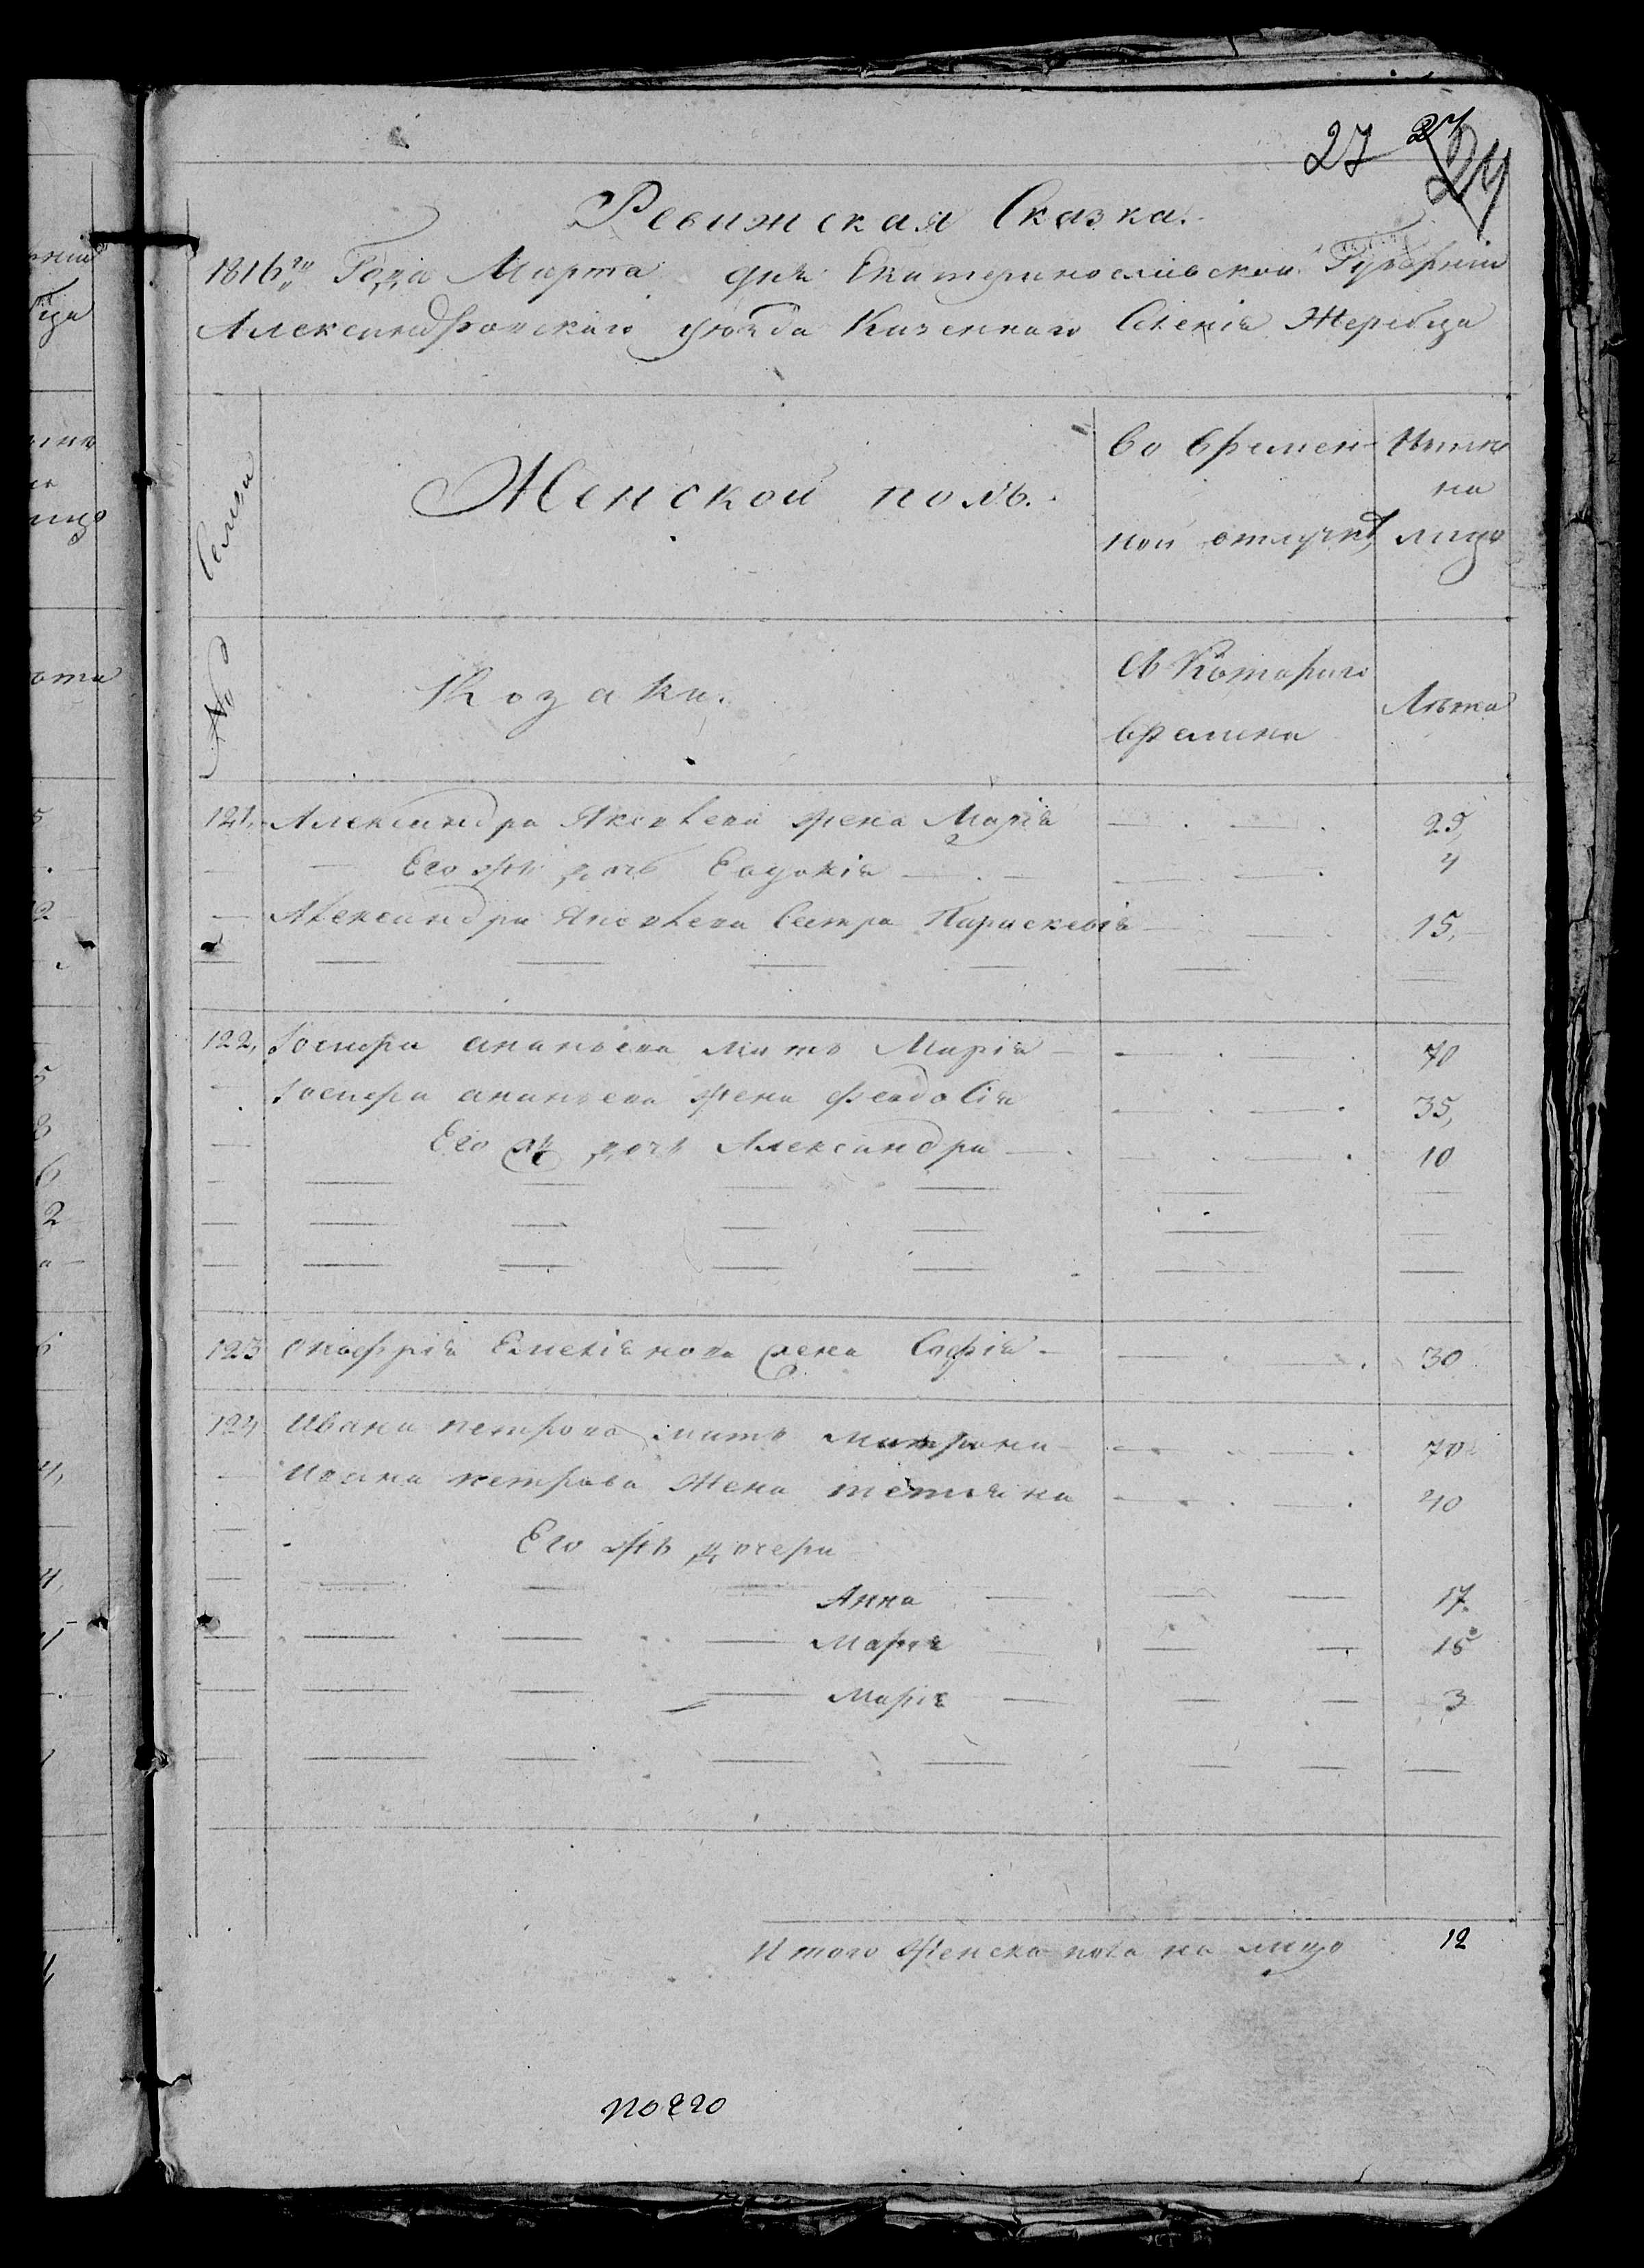 27 27 24
Ревижская Сказка.
1816го Года Марта дня Екатеринославской Губернии
Александровского уезда Казенного Селения Жеребца
Семьи
Женской полъ.
Во Времен
ной отлучке
Ныне
на
лицо
№
Козаки.
Съ Которого
времени
Лѣта
121, Александра Яковлева жена Марія 25,
Его жъ дочь Евдокія 4
Александра Яковлева Сестра Параскевія 15,
122, ананьева мать Марія 70
ананьева жена Феодосія 35,
Его жъ дочь Александра 10
123 Онофрія Емеліянова жена Софія 30
124 Ивана петрова мать матрона 70
Ивана петрова Жена тетияна 40
Его жъ дочери
Анна 17
Марія 15
Марія 3
Итого Женска пола на лицо 12
по 220